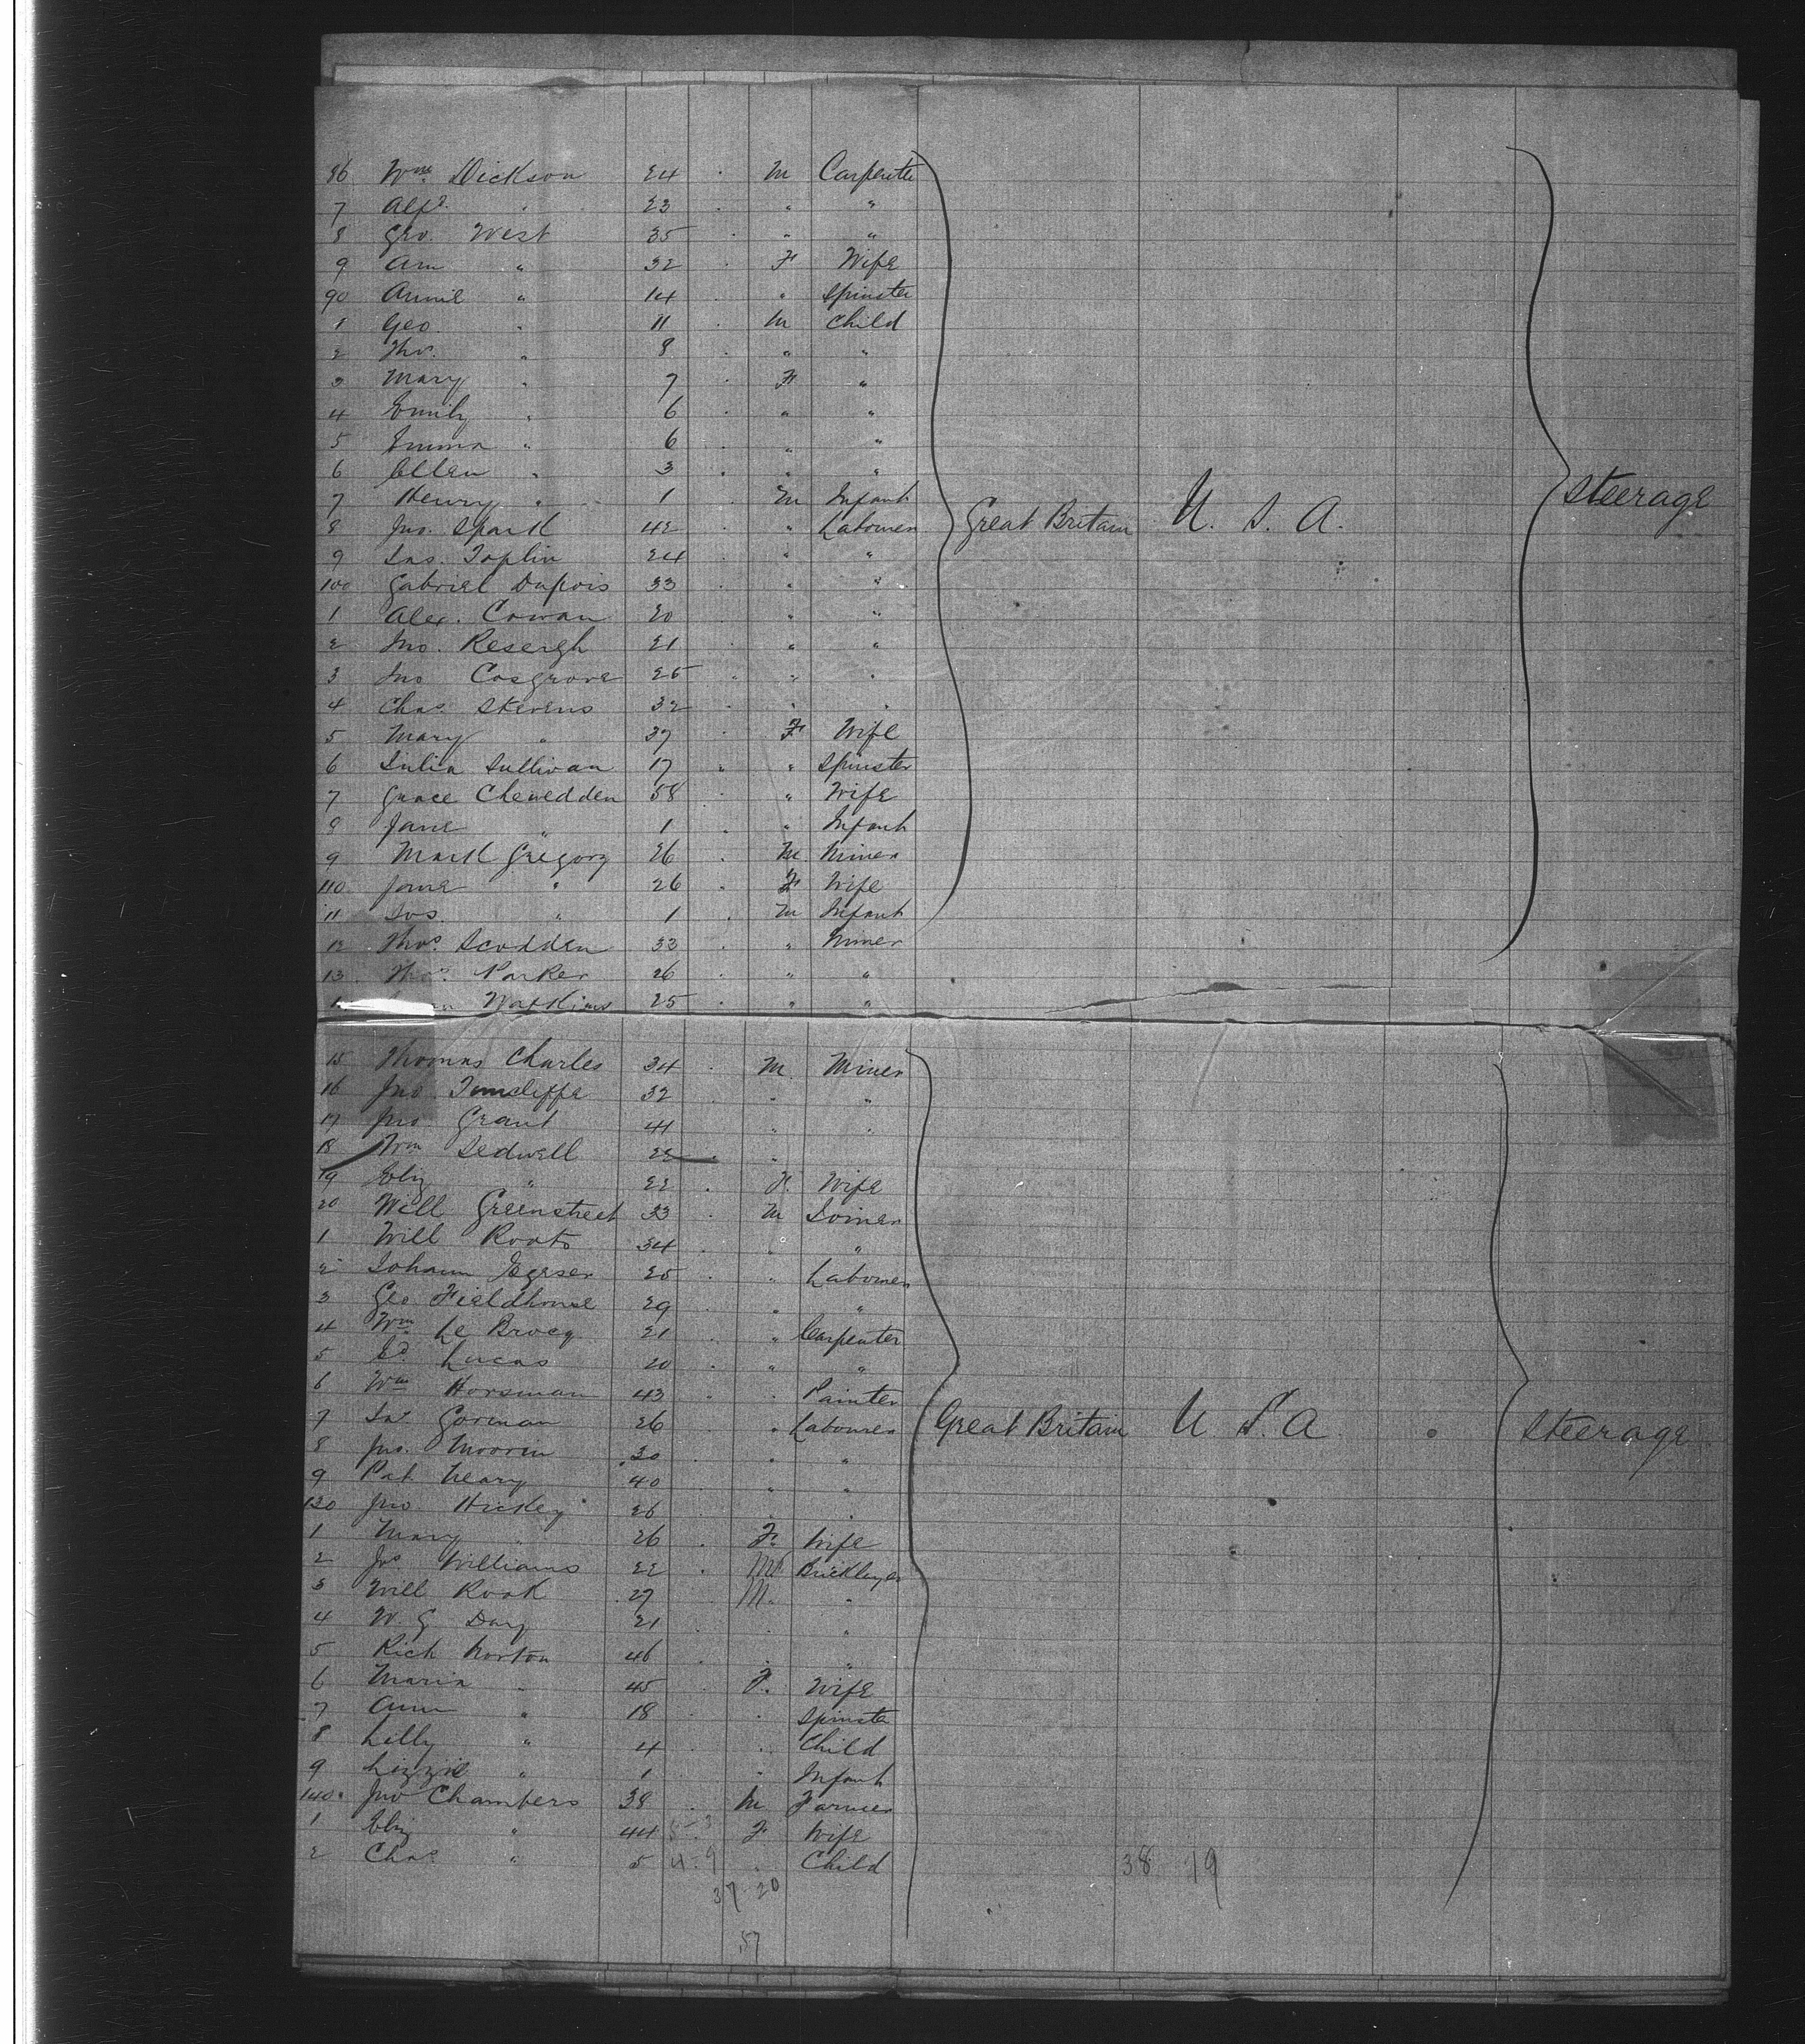 86 Wm Dickson 24 . M Carpenter
7 Alfd " 23 . " "
8 Geo. West 35 . " "
9 Ann " 32 . F Wife
90 Annie " 14 . " Spinster
1 Geo. " 11 . M Child
2 Thos. " 8 . " "
3 Mary " 7 . F "
4 Emily " 6 . " "
5 Emma " 6 . " "
6 Ellen " 3 . " "
7 Henry " 1 . M Infant
8 Jno. Spark 42 . " Labourer Great Britain U. S. A. Steerage
9 Jas. Toplin 24 . " "
100 Gabriel Dupois 33 . " "
1 Alex. Cowan 20 . " "
2 Jno. Reseigh 21 . " "
3 Jno Cosgrove 25 " " "
4 Chas. Stevens 32 . " "
5 Mary " 37 . F Wife
6 Julia Sullivan 17 " " Spinster
7 Grace Chewedden 58 . " Wife
8 Jane " 1 . " Infant
9 Mark Gregory 26 . M Miner
110 Jane " 26 . F Wife
11 Jos. " 1 . M Infant
12 Thos Scodden 33 . " Miner
13 Thos. Parker 26 . " "
Watkins 25 . " "
15 Thomas Charles 34 . M. Miner
16 Jno. Tunscliffe 32 . " "
17 Jno. Grant 41 " "
18 Wm Sedwell 22 . "
19 Eliz " 22 . F. Wife
20 Will Greenstreet 33 . M Joiner
1 Will Roots 34 . " "
2 Johann Egeser 25 . " Labourer
3 Geo Fieldhouse 29 . " "
4 Wm Le Brocq 21 . " Carpenter
5 Ed. Lucas 20 . " "
6 Wm Horsman 43 . " Painter
7 Jas Gorman 26 . " Labourer Great Britain U S. A Steerage
8 Jno. Moorin 30 . " "
9 Pat. Neary 40 " "
130 Jno. Hickey 26 . " "
1 Mary " 26 . F. Wife
2 Jos Williams 22 . M Bricklayer
3 Will Rook 27 M. "
4 W. G Day 21 . "
5 Rich Norton 46 . " "
6 Maria " 45 . F. Wife
7 Ann " 18 . " Spinster
8 Lilly " 4 . Child
9 Lizzie " 1 . Infant
140. Jno Chambers 38 . M Farmer
1 Eliz " 44 F Wife
2 Chas. " 5 4-9 " Child 38 19
37-20
57